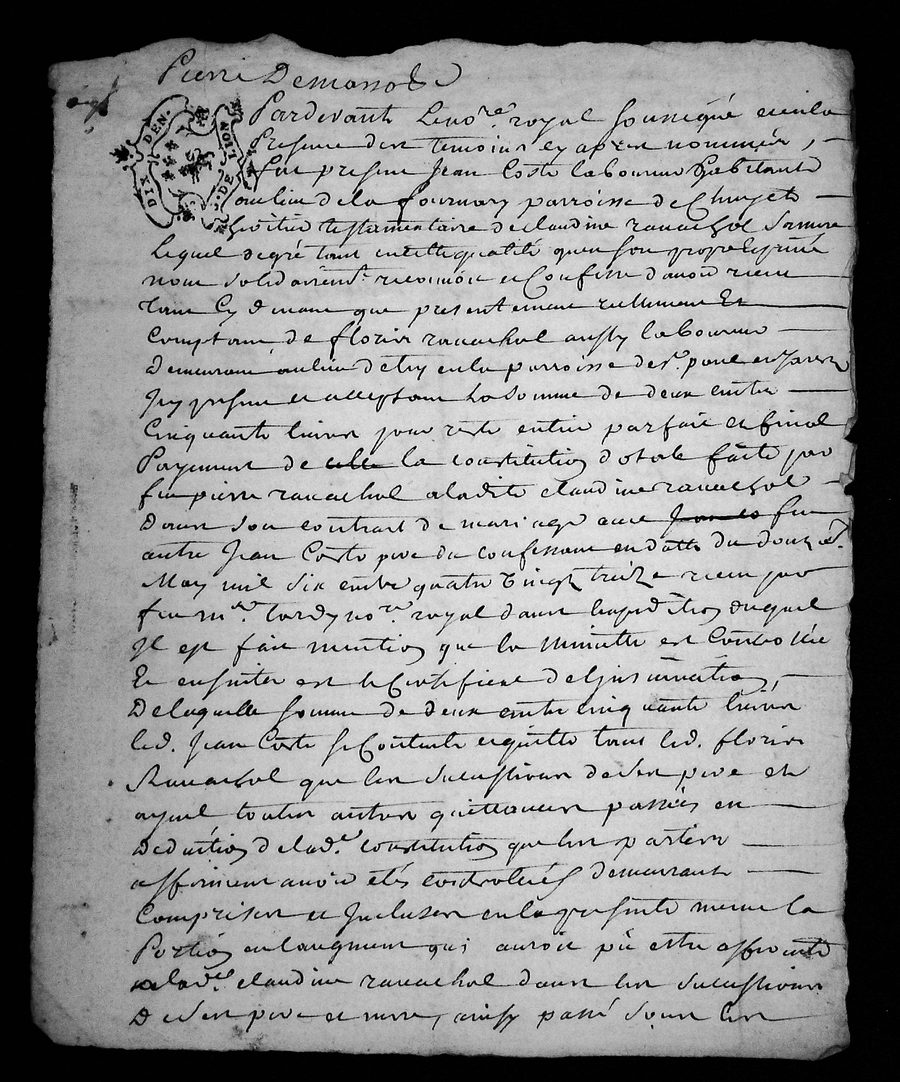 Pierre Demasso
DIX DEN.
G. DE LION
Pardevant Le no.re royal soussigné et en la
presence des temoins cy apres nommés,
fut present Jean Coste laboureur habitant
au lieu de la fournary parroisse de
heritier testamentaire de claudine ravachol sa mere
Lequel de gré tant en cette qualité qu'en son propre et privé
nom solidairem.t reconnoit et Confesse d'avoir receu
tant Cy devant que presentement reellement Et
Comptant de floris ravachol aussy laboureur
demeurant au lieu d'etry en la parroisse de s.t paul en Jarez
Jcy present et acceptant La somme de deux cents
Cinquante livres pour reste entier parfait et final
Payement de celle la constitution dotale faite par
feu pierre ravachol a ladite claudine ravachol
dans son contrat de mariage avec feu
autre Jean Coste pere du confessant en datte du douze
May mil six cents quatre vingt treize receu par
feu m.e tardy no.re royal dans l'expedition duquel
Jl est fait mention que la minutte est Controllée
Et ensuitte est le Certifficat de l'jnsinuation,
De laquelle somme de deux cents cinquante livres
led. Jean Coste se Contente et quitte tant led. floris
Ravachol que les successions de ses pere et
ayeul toutes autres quittances passées en
deduction de lad.e constitution que les parties
affirment avoir etés controlleés demeurants
Comprises et Jncluses en la presente meme la
Portion en l'augment qui auroit pû estre
a lad.e claudine ravachol dans les successions
De ses pere et mere, ainsy passé sous les